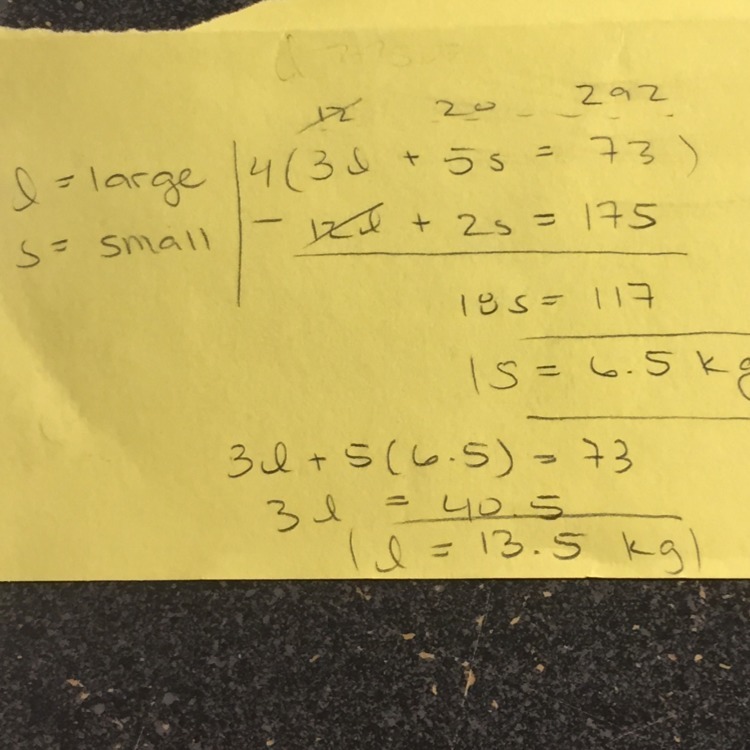 12 20 292
l = large
4(3l + 5s = 73)
s = small
- 12l + 2s = 175
18s = 117
1s = 6.5 kg
3l + 5(6.5) = 73
3l = 40.5
1l = 13.5 kg